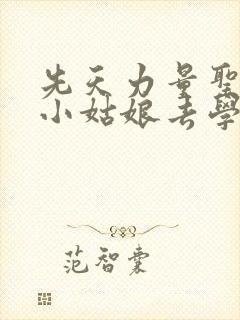 先天力量聖
小姑娘去學
范智囊